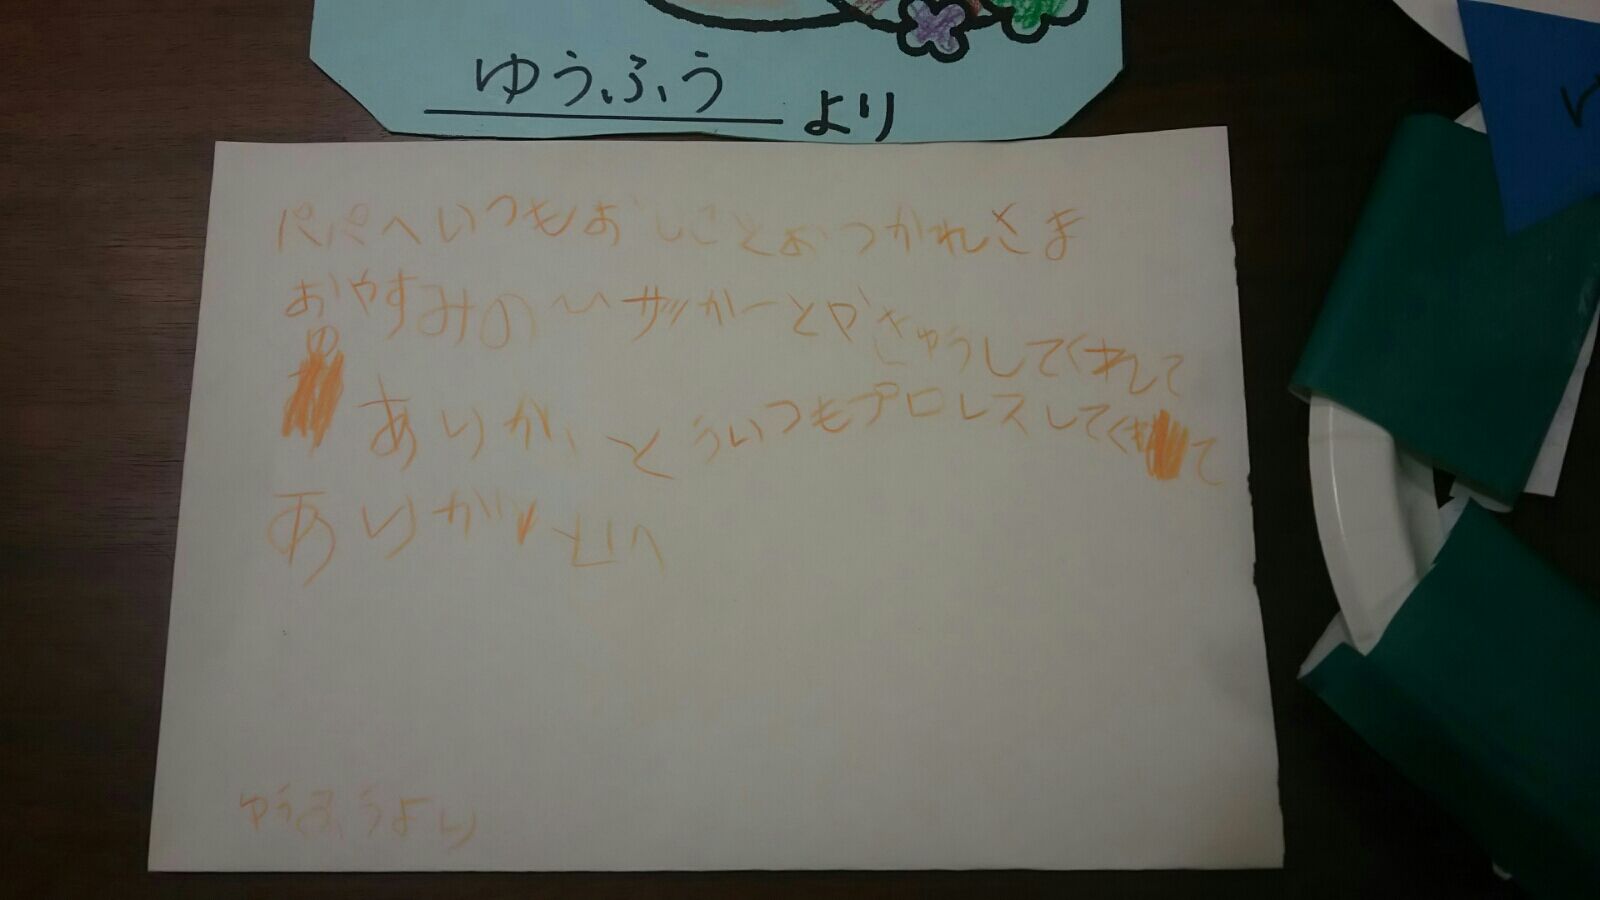 ゆうふう より
パパへいつもおしごとおつかれさま
おやすみのひサッカーとやきゅうしてくれて
ありがとういつもプロレスしてくれて
ありがとう
ゆうふうより